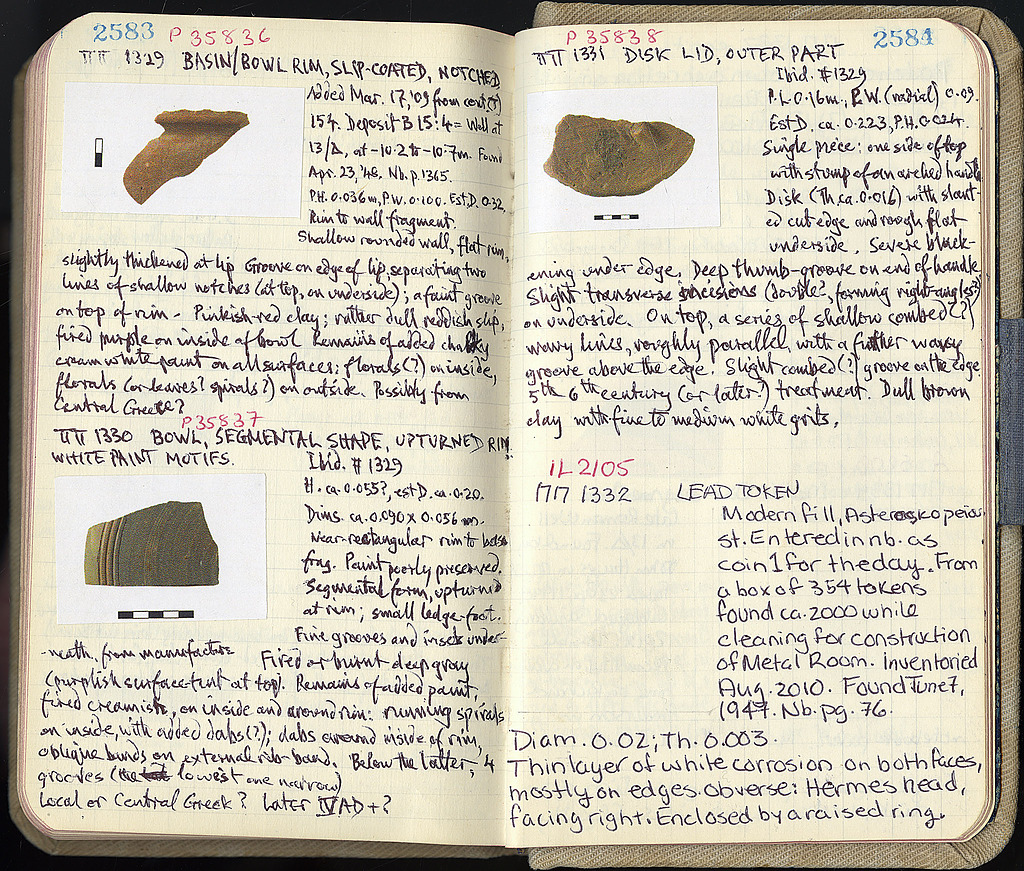 2583
P 35836
ΠΠ 1329 BASIN/BOWL RIM, SLIP-COATED, NOTCHED
Added Mar. 17, '09 from cont(?)
154. Deposit B 15:4 = Well at
13/Δ, at -10.2 to -10.7m. Found
Apr. 23, '48, Nb. p. 1365.
P.H. 0.036m, P.W. 0.100. Est. D. 0.32,
Rim to wall fragment.
Shallow rounded wall, flat rim,
slightly thickened at lip Groove on edge of lip, separating two
lines of shallow notches (at top, on underside); a faint groove
on top of rim - Pinkish-red clay; rather dull reddish slip,
fired purple on inside of bowl Remains of added chalky
cream white paint on all surfaces: florals(?) on inside,
florals (or leaves? spirals?) on outside. Possibly from
Central Greece?
P35837
ΠΠ 1330 BOWL, SEGMENTAL SHAPE, UPTURNED RIM
WHITE PAINT MOTIFS.
Ibid. # 1329
H. ca. 0.055?, est D. ca. 0.20.
Dims. ca. 0.090 x 0.056 m.
Near-rectangular rim to base
frag. Paint poorly preserved.
Segmental form, upturned
at rim; small ledge-foot.
Fine grooves and insets under-
-neath, from manufacture
Fired or burnt deep gray
(purplish surface-tint at top). Remains of added paint,
fired creamish, on inside and around rim: running spirals
on inside, with added dabs(?); dabs around inside of rim,
oblique bands on external rib-band. Below the latter, 4
grooves (the lowest one narrow)
Local or Central Greek? Later IV AD+?
P 35838
2584
ΠΠ 1331 DISK LID, OUTER PART
Ibid. #1329
P.L. 0.16m., P.W. (radial) 0.09.
Est D. ca. 0.223, P.H. 0.024.
Single piece: one side of top
with stump of an arched handle
Disk (Th. ca. 0.016) with slant-
ed cut edge and rough flat
underside. Severe black-
ening under edge. Deep thumb-groove on end of handle
Slight transverse incisions (double?, forming right-angles?)
on underside. On top, a series of shallow combed(?)
wavy lines, roughly parallel, with a further wavy
groove above the edge. Slight combed(?) groove on the edge
5th-6th century (or later?) treatment. Dull brown
clay with fine to medium white grits.
IL 2105
ΠΠ 1332 LEAD TOKEN
Modern fill, Asteroskopeiou
st. Entered in nb. as
coin 1 for the day. From
a box of 354 tokens
found ca. 2000 while
cleaning for construction
of Metal Room. Inventoried
Aug. 2010. Found June 7,
1947. Nb. pg. 76.
Diam. 0.02; Th. 0.003.
Thin layer of white corrosion on both faces,
mostly on edges. Obverse: Hermes head,
facing right. Enclosed by a raised ring.